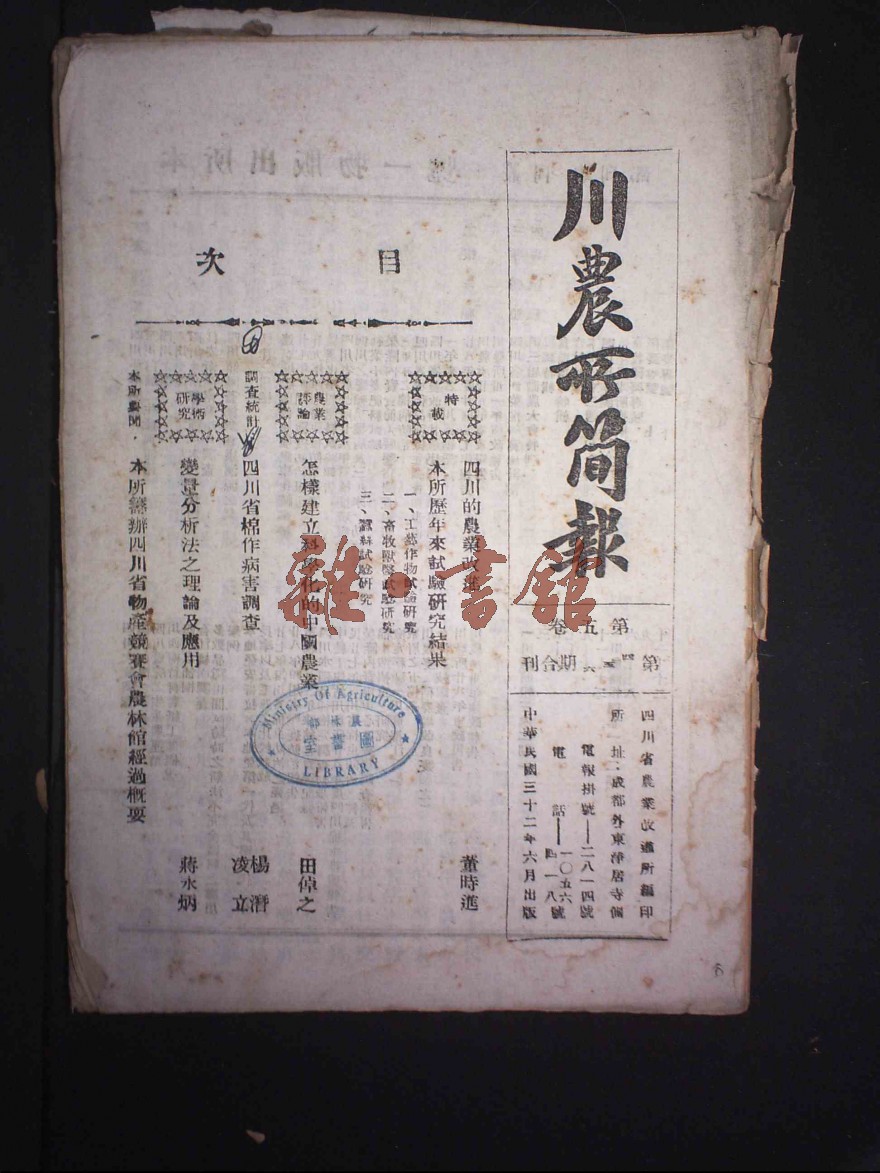 川農所简報
第五卷
第四五六期合刊
四川省農業改進所編印
所址：成都外東淨居寺側
電報掛號——二八一四號
電話——一〇五六號
四一八
中華民國三十二年六月出版
目次
特載
四川的農業改進
董時進
本所歷年來試驗研究結果
一、工藝作物試驗研究
二、畜牧獸醫試驗研究
三、蠶絲試驗研究
農業評論
怎樣建立科學化的中國農業
田倬之
調查統計
四川省棉作病害調查
楊濳
凌立
學術研究
變量分析法之理論及應用
蔣永炳
本所要聞
本所籌辦四川省物產競賽會農林館經過概要
Ministry Of Agriculture
農林部
圖書室
LIBRARY
雜·書館